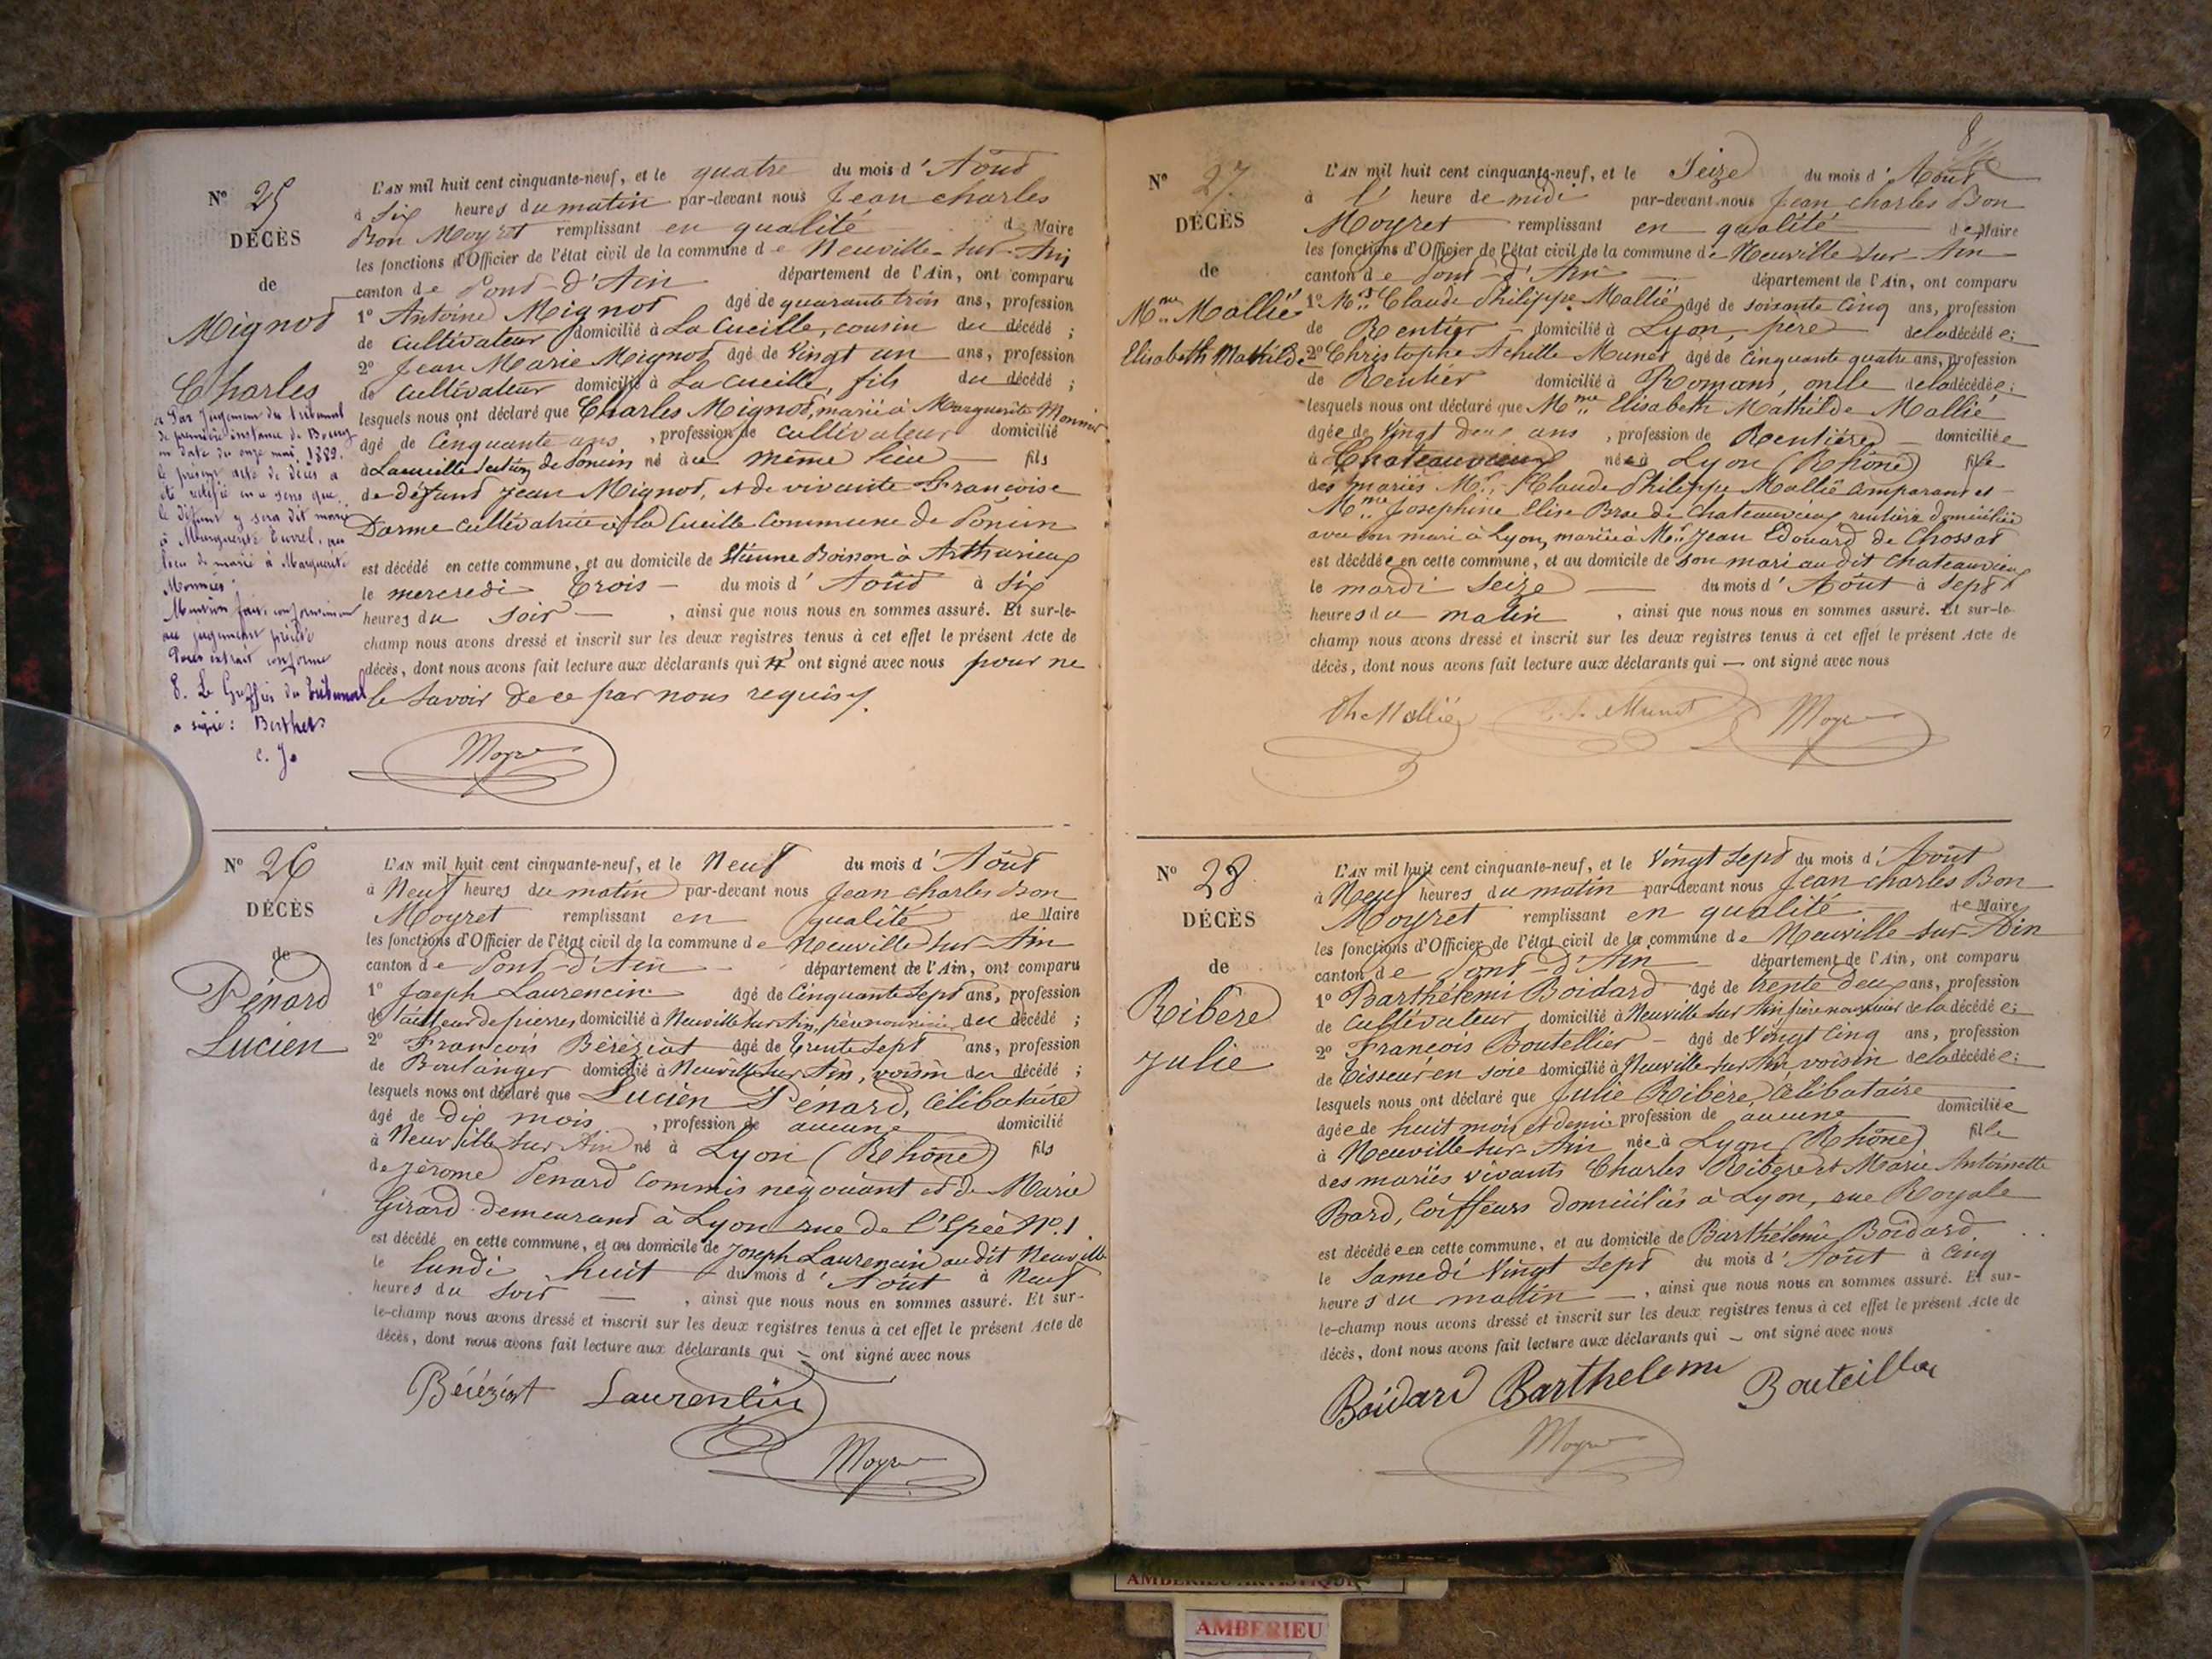 Nº 25
DÉCÈS
de
Mignot
Charles
Par Jugement du Tribunal
de première instance de Bourg
en date du onze mai 1889,
le présent acte de décès a
été rectifié en ce sens que
le défunt y sera dit marié
à Marguerite Eurrel, au
lieu de marié à Marguerite
Monnier
Mention faite conformément
au jugement précité
Pour extrait conforme
Le Greffier du Tribunal
a signé : Berthet
c. J.
L'AN mil huit cent cinquante-neuf, et le quatre du mois d'Aout
à Six heures du matin par-devant nous Jean Charles
Bon Moyret remplissant en qualité de Maire
les fonctions d'Officier de l'état civil de la commune de Neuville-sur-Ain
canton de Pont-d'Ain département de l'Ain, ont comparu
1º Antoine Mignot âgé de quarante trois ans, profession
de cultivateur domicilié à La Cueille, cousin du décédé ;
2º Jean Marie Mignot âgé de Vingt un ans, profession
de cultivateur domicilié à La Cueille, fils du décédé ;
lesquels nous ont déclaré que Charles Mignot, marié à Marguerite Monnier
âgé de Cinquante ans, profession de cultivateur domicilié
à Lacueille section de Poncin né au même lieu fils
de défunt Jean Mignot, et de vivante Françoise
Darme cultivatrice à la Cueille Commune de Poncin
est décédé en cette commune, et au domicile de Etienne Boisson à Arthurieux
le mercredi Trois du mois d'Août à Six
heures du soir, ainsi que nous nous en sommes assuré. Et sur-le-
champ nous avons dressé et inscrit sur les deux registres tenus à cet effet le présent Acte de
décès, dont nous avons fait lecture aux déclarants qui n'ont signé avec nous pour ne
le savoir de ce par nous requis.
Moyret
Nº 26
DÉCÈS
de
Pénard
Lucien
L'AN mil huit cent cinquante-neuf, et le Neuf du mois d'Août
à Neuf heures du matin par-devant nous Jean Charles Bon
Moyret remplissant en qualité de Maire
les fonctions d'Officier de l'état civil de la commune de Neuville sur Ain
canton de Pont-d'Ain département de l'Ain, ont comparu
1º Joseph Laurencin âgé de Cinquante Sept ans, profession
de tailleur de pierres domicilié à Neuville sur Ain, père nourricier du décédé ;
2º François Béréziat âgé de Trente Sept ans, profession
de Boulanger domicilié à Neuville sur Ain, voisin du décédé ;
lesquels nous ont déclaré que Lucien Pénard, Célibataire
âgé de dix mois, profession de aucune domicilié
à Neuville sur Ain né à Lyon (Rhône) fils
de Jérome Penard Commis négociant et de Marie
Girard demeurant à Lyon rue de l'Epée Nº 1
est décédé en cette commune, et au domicile de Joseph Laurencin au dit Neuville
le lundi huit du mois d'Août à Neuf
heures du soir, ainsi que nous nous en sommes assuré. Et sur-
le-champ nous avons dressé et inscrit sur les deux registres tenus à cet effet le présent Acte de
décès, dont nous avons fait lecture aux déclarants qui — ont signé avec nous
Béréziat Laurentin
Moyret
8
Nº 27
DÉCÈS
de
Mme Mallié
Elisabeth Mathilde
L'AN mil huit cent cinquante-neuf, et le Seize du mois d'Août
à l' heure de midi par-devant nous Jean Charles Bon
Moyret remplissant en qualité de Maire
les fonctions d'Officier de l'état civil de la commune de Neuville sur Ain
canton de Pont-d'Ain département de l'Ain, ont comparu
1º Mr Claude Philippe Mallié, âgé de soixante Cinq ans, profession
de Rentier domicilié à Lyon, père de la décédée ;
2º Christophe Achille Munet âgé de Cinquante quatre ans, profession
de Rentier domicilié à Romans, oncle de la décédée ;
lesquels nous ont déclaré que Mme Elisabeth Mathilde Mallié
âgée de Vingt deux ans, profession de Rentière domiciliée
à Chateauvieux née à Lyon (Rhône) fille
des mariés Mr Claude Philippe Mallié Comparant et
Mme Josephine Elise Brac de Chateauvieux rentière domiciliée
avec son mari à Lyon, mariée à Mr Jean Edouard de Chossat
est décédée en cette commune, et au domicile de son mari au dit Chateauvieux
le mardi Seize du mois d'Août à Sept
heures du matin, ainsi que nous nous en sommes assuré. Et sur-le-
champ nous avons dressé et inscrit sur les deux registres tenus à cet effet le présent Acte de
décès, dont nous avons fait lecture aux déclarants qui — ont signé avec nous
Ch Mallié Munet Moyret
Nº 28
DÉCÈS
de
Ribère
Julie
L'AN mil huit cent cinquante-neuf, et le Vingt Sept du mois d'Août
à Neuf heures du matin par-devant nous Jean Charles Bon
Moyret remplissant en qualité de Maire
les fonctions d'Officier de l'état civil de la commune de Neuville-sur-Ain
canton de Pont-d'Ain département de l'Ain, ont comparu
1º Barthélemi Boidard âgé de trente deux ans, profession
de Cultivateur domicilié à Neuville sur Ain père nourricier de la décédée ;
2º François Boutellier âgé de Vingt Cinq ans, profession
de Tisseur en soie domicilié à Neuville sur Ain voisin de la décédée ;
lesquels nous ont déclaré que Julie Ribère Célibataire
âgée de huit mois et demi profession de aucune domiciliée
à Neuville sur Ain née à Lyon (Rhône) fille
des mariés vivants Charles Ribère et Marie Antoinette
Bard, Coiffeurs domiciliés à Lyon, rue Royale
est décédée en cette commune, et au domicile de Barthélemi Boidard
le Samedi Vingt Sept du mois d'Août à Cinq
heures du matin, ainsi que nous nous en sommes assuré. Et sur-
le-champ nous avons dressé et inscrit sur les deux registres tenus à cet effet le présent Acte de
décès, dont nous avons fait lecture aux déclarants qui — ont signé avec nous
Boidard Barthelemi Bouteiller
Moyret
AMBERIEU ARTISTIQUE
AMBERIEU